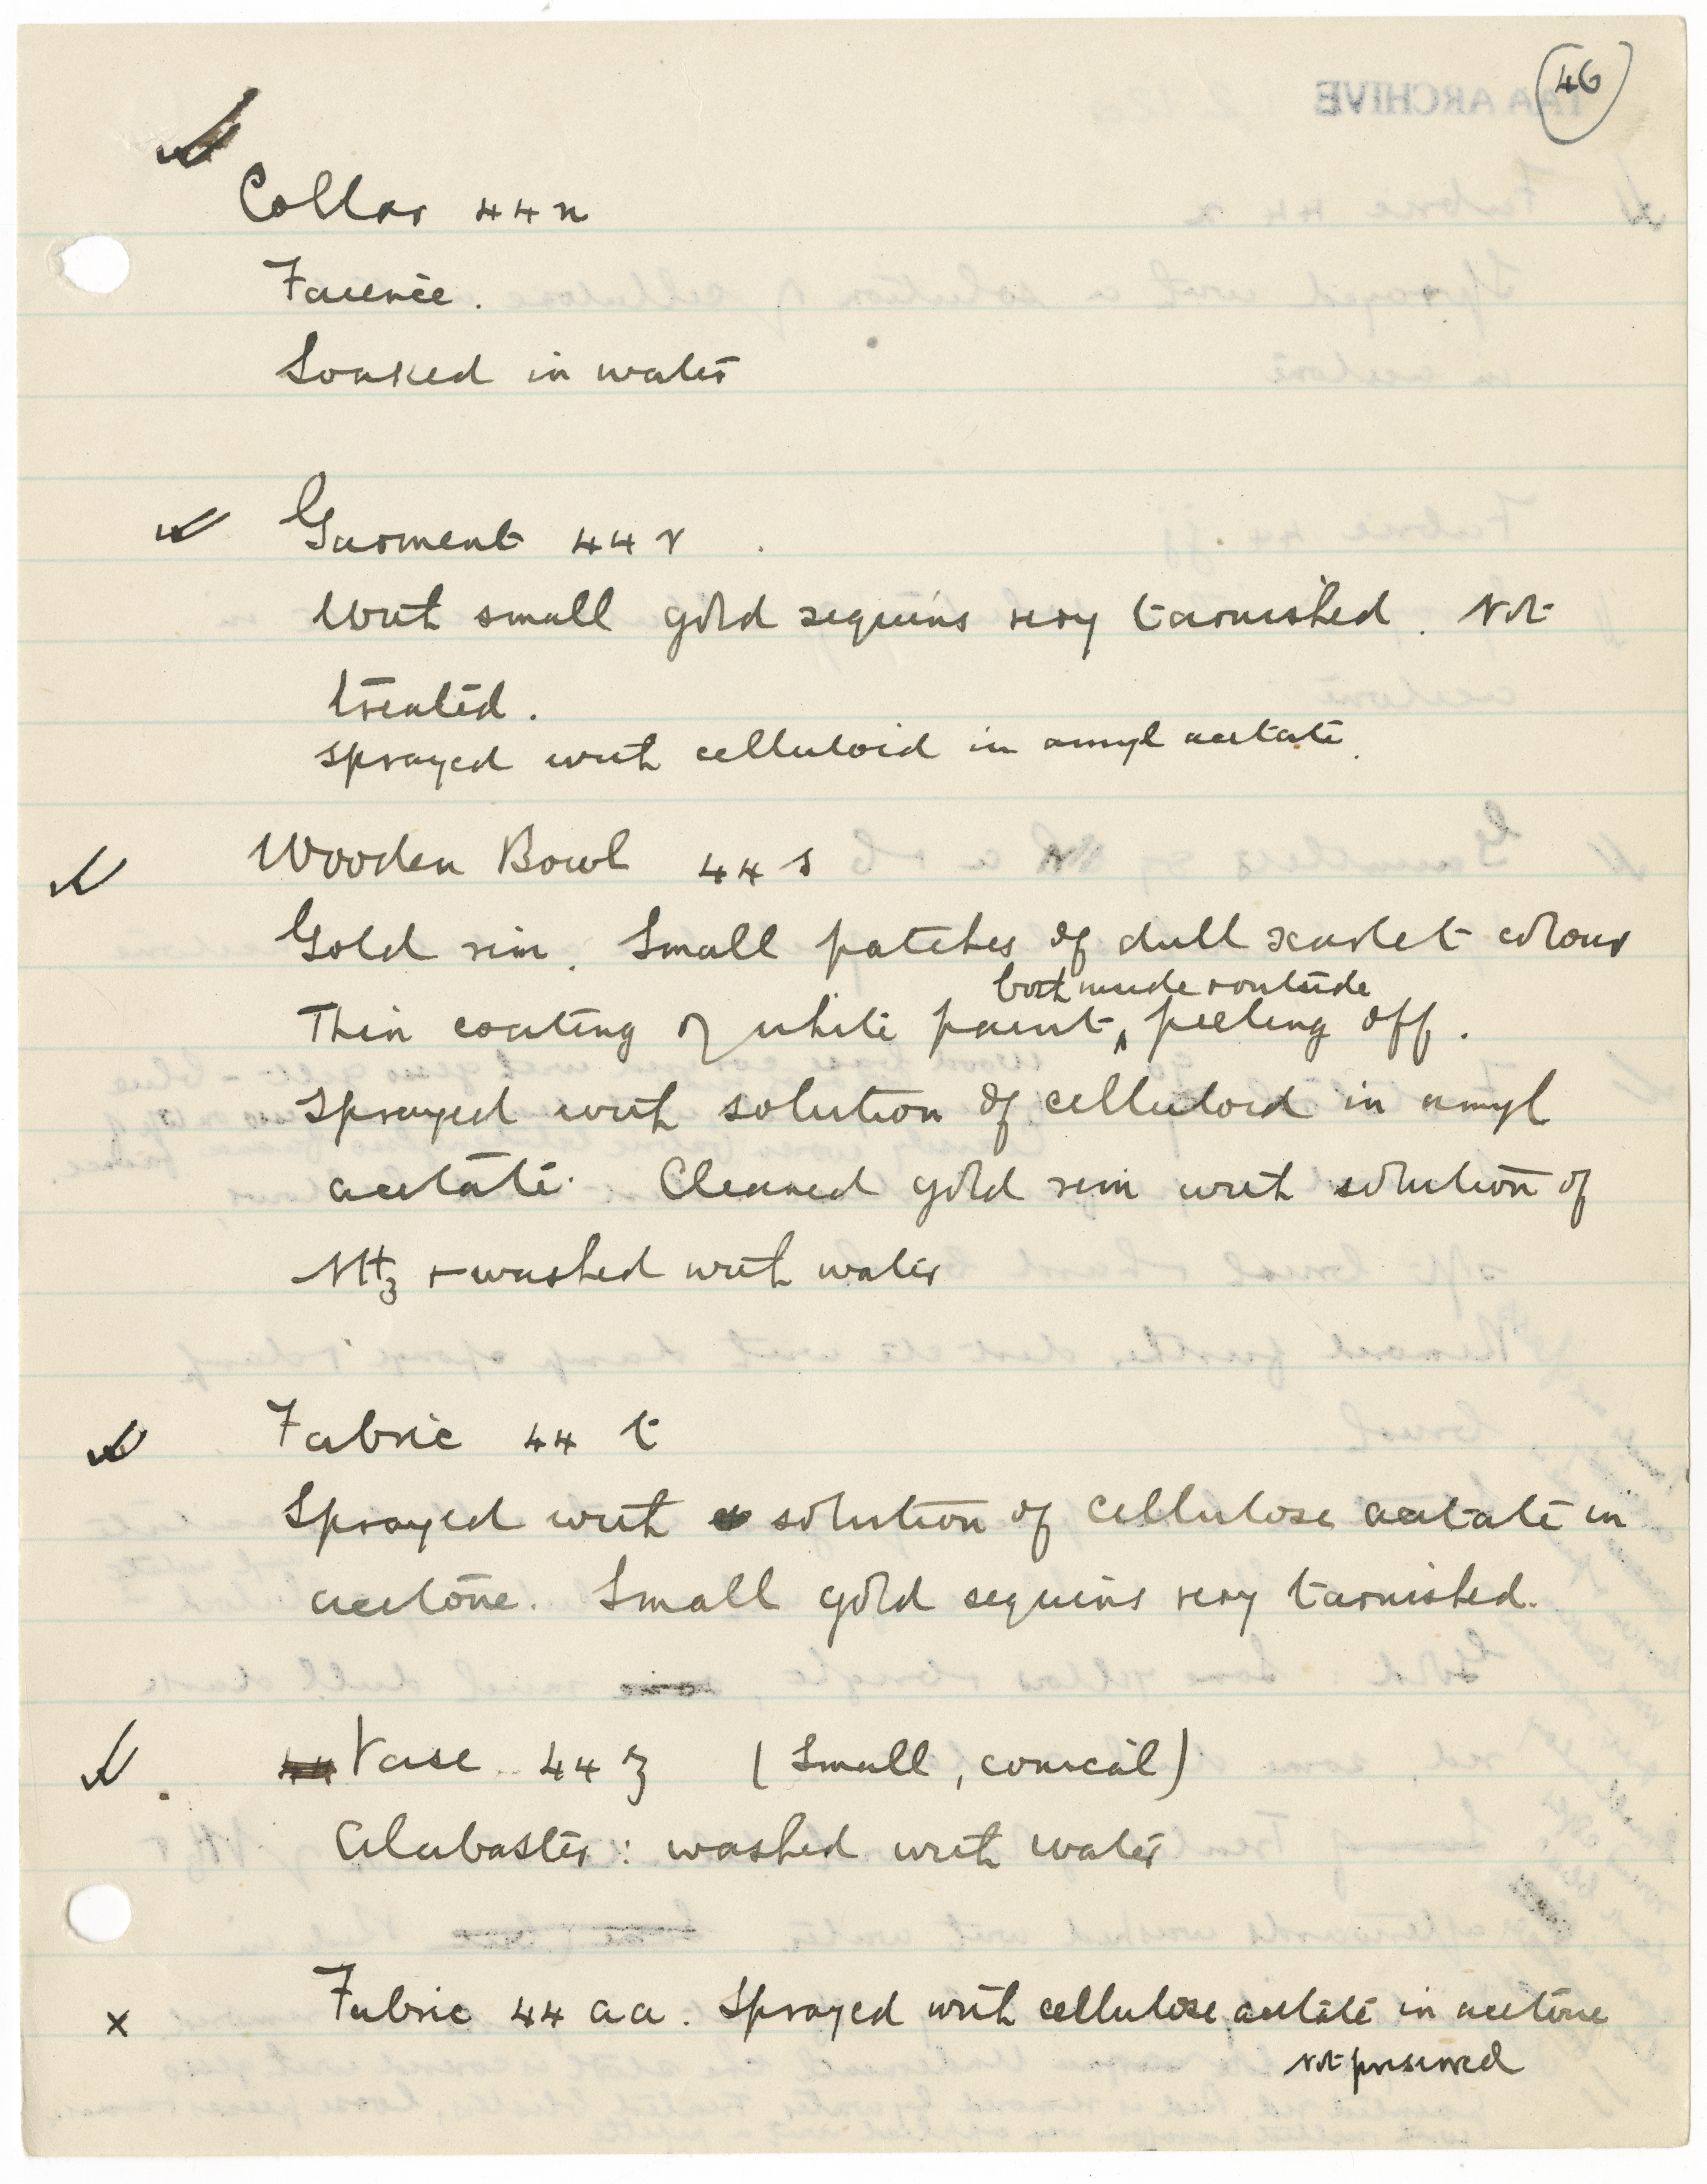 46
Collar 44n
Faience.
Soaked in water
Garment 44r
With small gold sequins very tarnished. Not
treated.
Sprayed with celluloid in amyl acetate.
Wooden Bowl 44s
Gold rim. Small patches of dull scarlet colour
both inside & outside
Thin coating of white paint, peeling off.
Sprayed with solution of celluloid in amyl
acetate. Cleaned gold rim with solution of
NH3 & washed with water
Fabric 44 t
Sprayed with solution of cellulose acetate in
acetone. Small gold sequins very tarnished.
44 Vase 44 z (Small, conical)
Alabaster: washed with water
x Fabric 44 aa. Sprayed with cellulose acetate in acetone
Not preserved